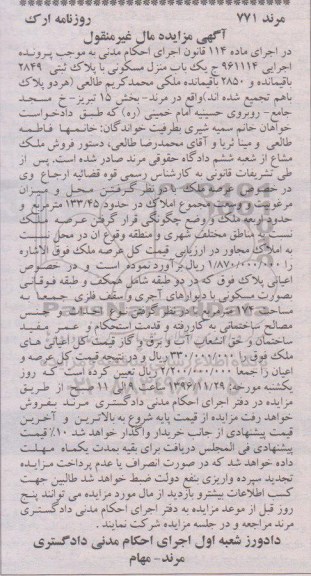 مرند ۷۷۱ روزنامه ارک
آگهی مزایده مال غیرمنقول
در اجرای ماده ۱۱۴ قانون اجرای احکام مدنی به موجب پرونده
اجرایی ۹۶۱۱۱۴ ج یک باب منزل مسکونی با پلاک ثبتی ۲۸۴۹
باقیمانده و ۲۸۵۰ باقیمانده ملکی محمدکریم طالعی (هردو پلاک
باهم تجمیع شده اند)واقع در مرند- بخش ۱۵ تبریز- خ مسجد
جامع- روبروی حسینیه امام خمینی (ره) که طبق دادخواست
خواهان خانم سمیه شیری بطرفیت خواندگان: خانمها فاطمه
طالعی و مینا ثریا و آقای محمدرضا طالعی، دستور فروش ملک
مشاع از شعبه ششم دادگاه حقوقی مرند صادر شده است. پس از
طی تشریفات قانونی به کارشناس رسمی قوه قضائیه ارجاع وی
در خصوص عرصه ملک با در نظر گرفتن محل و میزان
مرغوبیت و وسعت مجموع املاک در حدود ۱۳۳/۴۵ مترمربع و
حدود اربعه ملک و وضع چگونگی قرار گرفتن عرصه ملک
نسبت به مناطق مختلف شهری و منطقه وقوع آن در محل نسبت
به املاک مجاور در ارزیابی قیمت کل عرصه ملک فوق الاشاره
را ۱/۸۷۰/۰۰۰/۰۰۰ ریال برآورد نموده است و در خصوص
اعیانی پلاک فوق که در دو طبقه شامل همکف و طبقه فوقانی
بصورت مسکونی با دیوارهای آجری و سقف فلزی جمعا به
مساحت ۱۷۴ گرفتن جنس
مصالح ساختمانی به کاررفته و قدمت استحکام و عمر مفید
ساختمان و حق انشعاب آب و برق و گاز قیمت کل اعیانی های
ملک فوق را ۳۳۰/۰۰۰/۰۰۰ ریال و در نتیجه قیمت کل عرصه و
اعیان را جمعا ۲/۲۰۰/۰۰۰/۰۰۰ ریال تعیین کرده است که روز
یکشنبه مورخه ۱۳۹۶/۱۱/۲۹ ساعت ۹ الی ۱۱ صبح از طریق
مزایده در دفتر اجرای احکام مدنی دادگستری مرند بفروش
خواهد رفت مزایده از قیمت پایه شروع به بالاترین و آخرین
قیمت پیشنهادی از جانب خریدار واگذار خواهد شد ۱۰٪ قیمت
پیشنهادی فی المجلس دریافت برای بقیه بمدت یکماه مهلت
داده خواهد شد که در صورت انصراف یا عدم پرداخت مزایده
تجدید سپرده واریزی بنفع دولت ضبط خواهد شد طالبین جهت
کسب اطلاعات بیشترو بازدید از مال مورد مزایده می توانند پنج
روز قبل از موعد مزایده به دفتر اجرای احکام مدنی دادگستری
مرند مراجعه و در جلسه مزایده شرکت نمایند.
دادورز شعبه اول اجرای احکام مدنی دادگستری
مرند- مهام